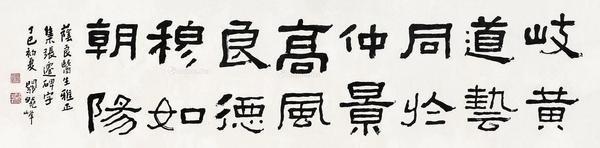 岐黄
道藝
同於
仲景
高風
良德
穆如
朝陽
蔭良醫生雅正
集張遷碑字
丁巳初夏 關曉峰